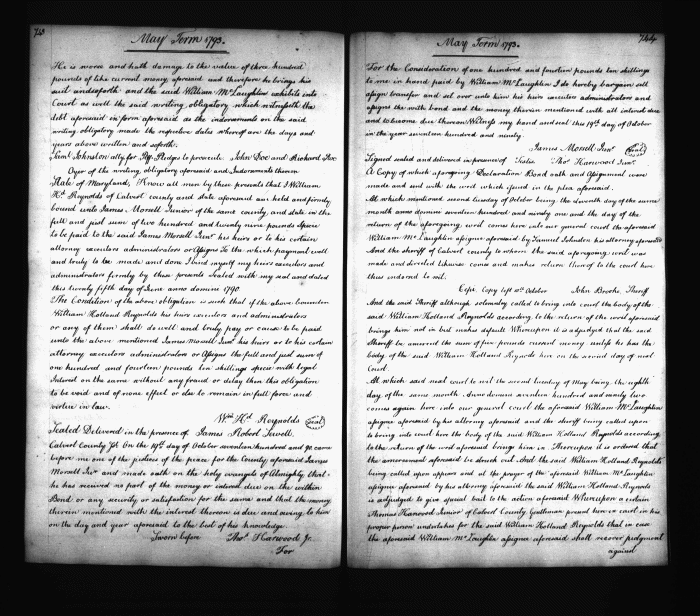 743
May Term 1793.
He is worse and hath damage to the value of three hundred
pounds of like current money aforesaid and therefore he brings his
suit and so forth and the said William McLaughlin exhibits into
Court as well the said writing obligatory which witnesseth the
debt aforesaid in form aforesaid as the indorsments on the said
writing obligatory made the repective dates whereof are the days and
years above written and soforth.
Saml Johnston atty for Plff Pledges to prosecute John Doe and Richard Roe
Oyer of the writing obligatory aforesaid and Indorsments thereon
State of Maryland, Know all men by these presents that I William
Hd Reynolds of Calvert county and state aforesaid am held and firmly
bound unto James Morsell Junior of the same county and state in the
full and just sum of two hundred and twenty nine pounds specie
to be paid to the said James Morsell Junr his heirs or to his certain
attorney executors administrators or assigns To the which payment well
and truly to be made and done I bind myself my heirs executors and
administrators firmly by these presents Sealed with my seal and dated
this twenty fifth day of June anno domini 1790
The Condition of the above obligation is such that if the above bounden
William Holland Reynolds his heirs executors and administrators
or any of them shall do well and truly pay or cause to be paid
unto the above mentioned James Morsell Junr his heirs or to his certain
attorney executors administrators or assigns the full and just sum of
one hundred and fourteen pounds ten shillings specie with legal
Interest on the same without any fraud or delay then this obligation
to be void and of none effect or else to remain in full force and
virtue in law.
Wm Hd Reynolds (Seal)
Sealed Delivered in the presence of James Robert Jewell
Calvert County Sct On the 19th day of October seventeen hundred and 90 came
before me one of the justices of the peace for the County aforesaid James
Morsell Junr and made oath on the holy evangels of Almighty that
he has received no part of the money or interest due on the within
Bond or any security or satisfaction for the same and that the money
therein mentioned with the interest thereon is due and owing to him
on the day and year aforesaid to the best of his knowledge
Sworn before Thos Harwood Jr.
For
744
May Term 1793.
For the Consideration of one hundred and fourteen pounds ten shillings
to me in hand paid by William McLaughlin I do hereby bargain sell
assign transfer and set over unto him his heirs executors administrators and
assigns the with bond and the money therein mentioned with all interest due
and to become due thereon Witness my hand and seal this 19th day of October
in the year seventeen hundred and ninety.
James Morsell Junr (Seal)
Signed sealed and delivered in presence of Teste Thos Harwood Junr
A Copy of which aforegoing Declaration Bond oath and assignment were
made and sent with the writ which issued in the plea aforesaid.
At which mentioned second tuesday of October being the eleventh day of the same
month anno domini seventeen hundred and ninety one and the day of the
return of the aforegoing writ comes here into our general court the aforesaid
William McLaughlin assignee aforesaid by Samuel Johnston his attorney aforesaid
And the sheriff of Calvert county to whom the said aforegoing writ was
made and directed likewise comes and makes return thereof to the court here
thus endorsed to wit.
Cepi Copy left 10th October John Brooke Sheriff
And the said sheriff although solemnly called to bring into court the body of the
said William Holland Reynolds according to the return of the writ aforesaid
brings him not in but makes default Whereupon it is adjudged that the said
Sheriff be amerced the sum of five pounds current money unless he has the
body of the said William Holland Reynods here on the second day of next
Court.
At which said next court to wit the second tuesday of May being the eighth
day of the same month Anno domini seventeen hundred and ninety two
comes again here into our general court the aforesaid William McLaughlin
assignee aforesaid by his attorney aforesaid and the sheriff being called upon
to bring into court here the body of the said William Holland Reynolds according
to the return of the writ aforesaid brings him in Thereupon it is ordered that
the amerciament aforesaid be struck out And the said William Holland Reynolds
being called upon appears and at the prayer of the aforesaid William McLaughlin
assignee aforesaid by his attorney aforesaid the said William Holland Reynods
is adjudged to give special bail to the action aforesaid Whereupon a certain
Thomas Harwood Junior of Calvert County Gentleman present here in court in his
proper person undertakes for the said William Holland Reynolds that in case
the aforesaid William McLaughlin assignee aforesaid shall recover judgment
against